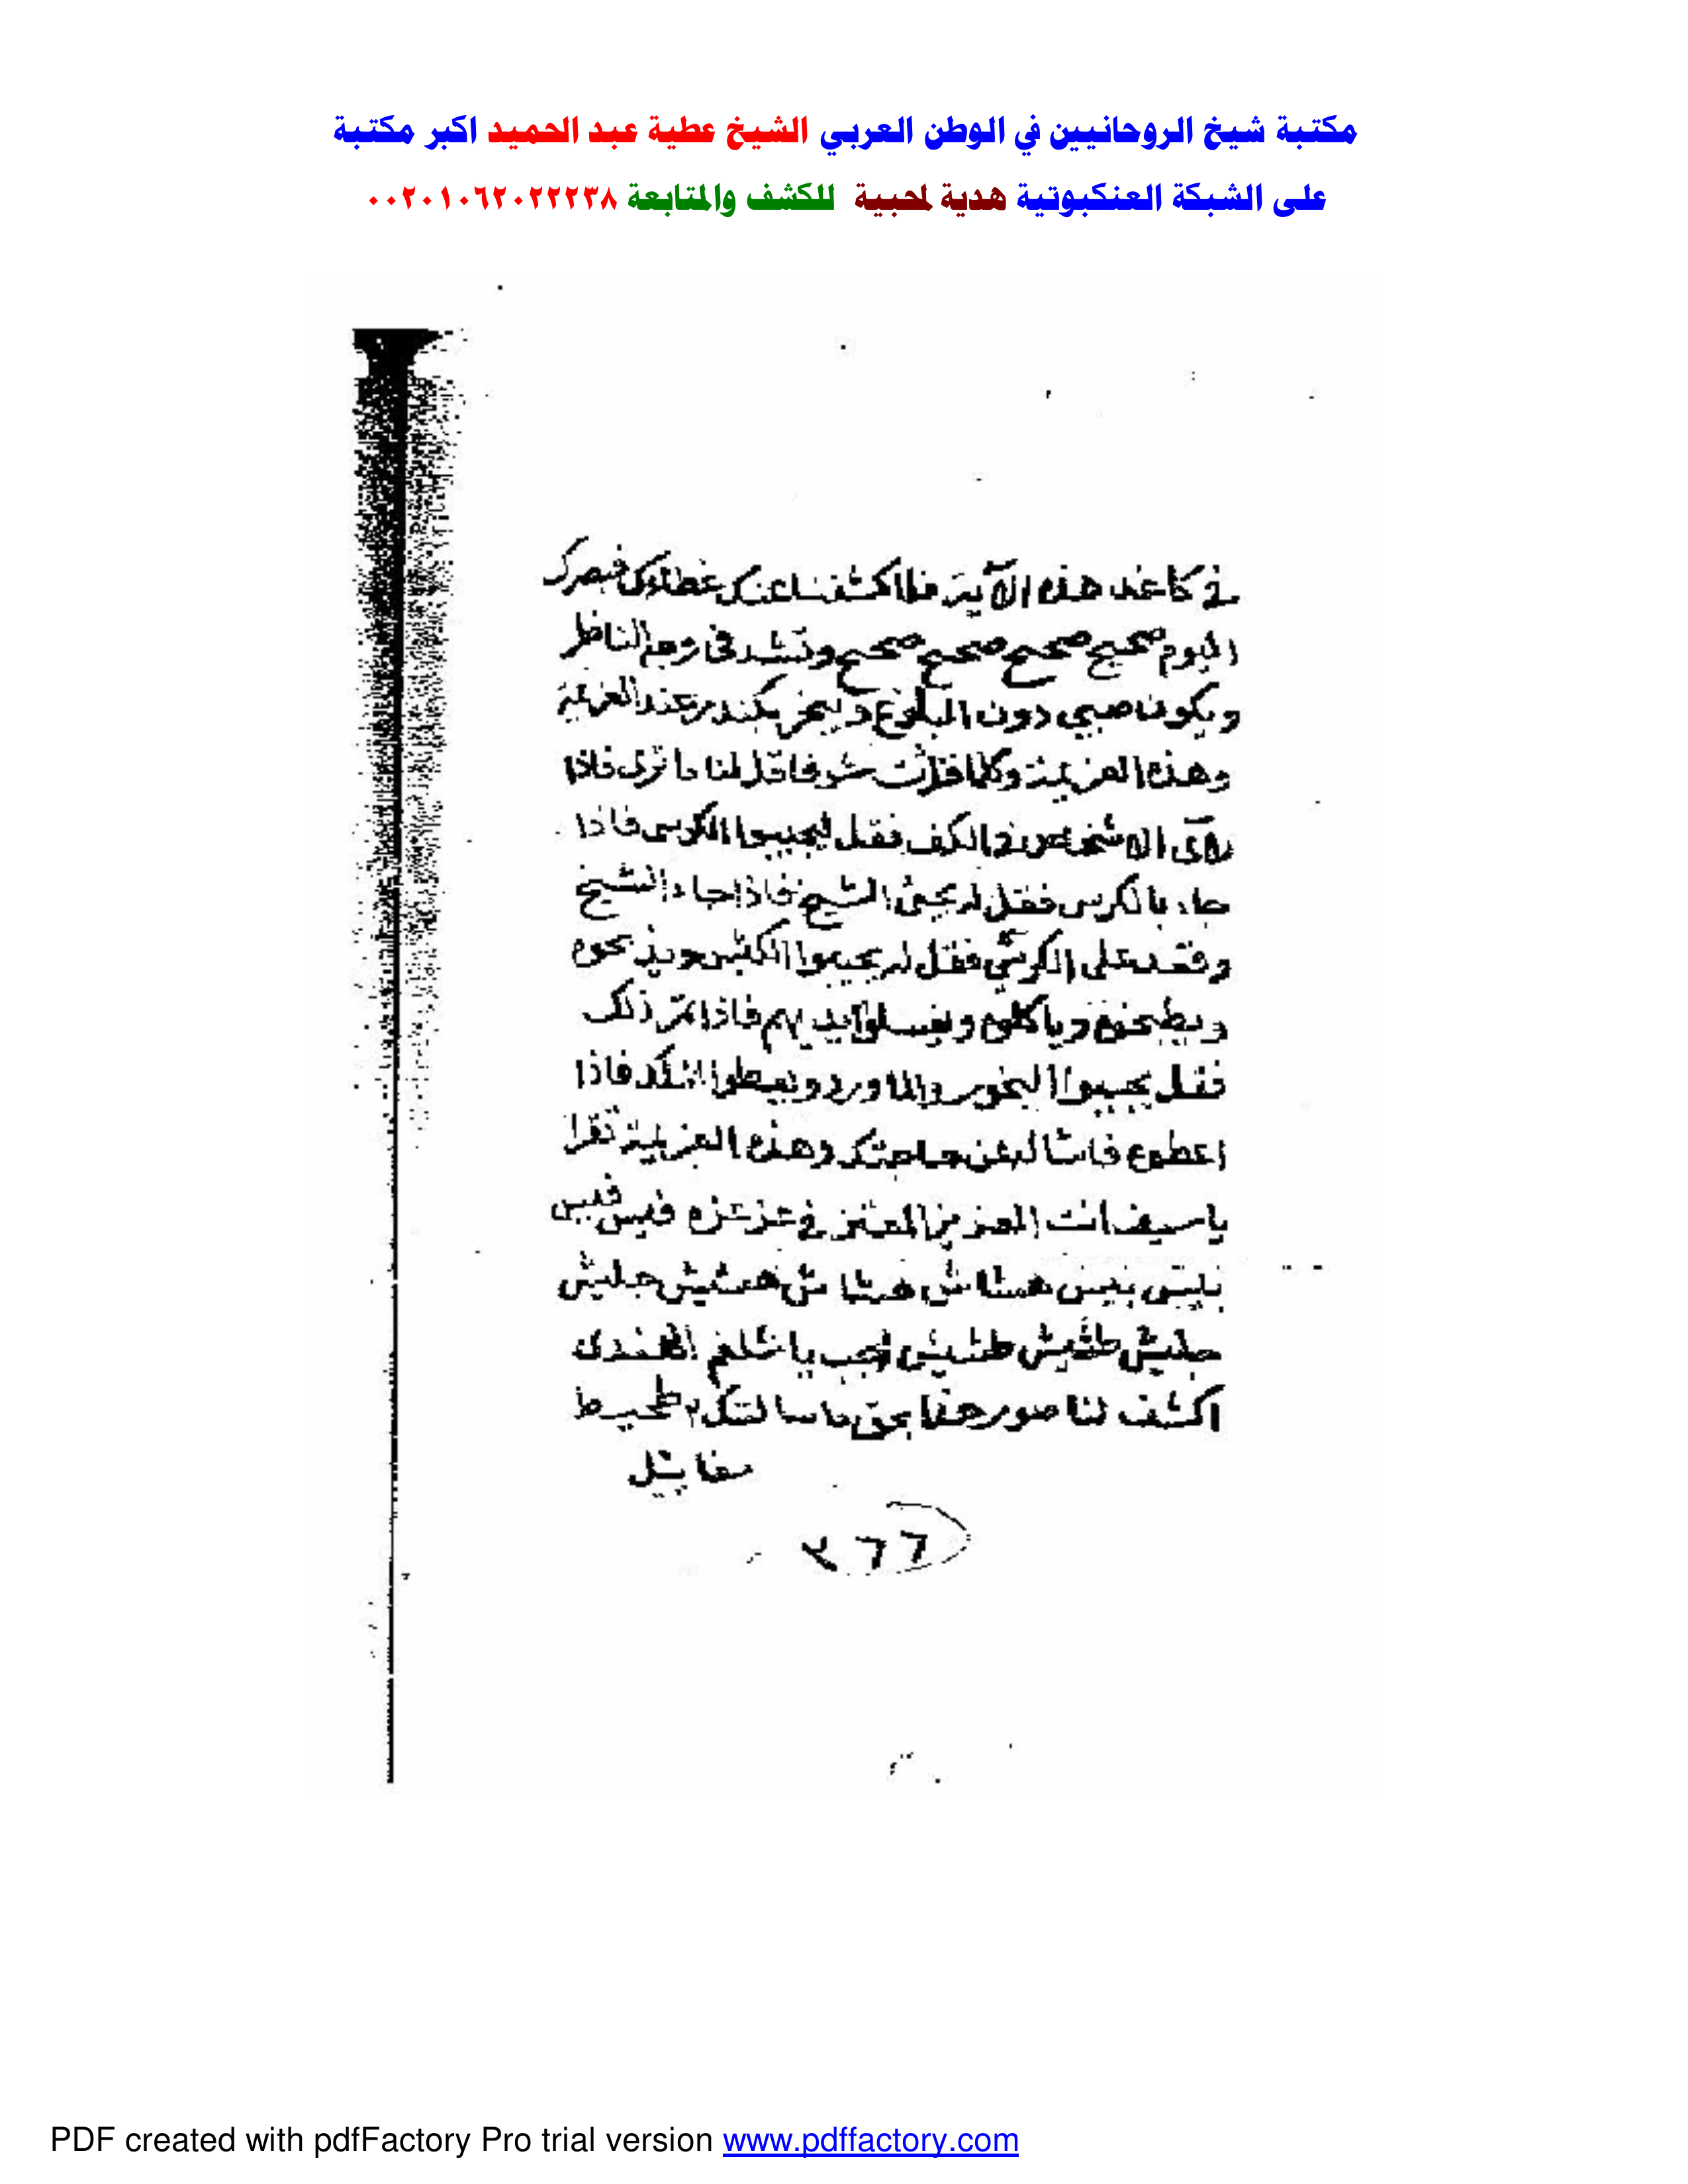 مكتبة شيخ الروحانيين في الوطن العربي الشيخ عطية عبد الحميد اكبر مكتبة
على الشبكة العنكبوتية هدية لمحبية للكشف والمتابعة ٠٠٢٠١٠٦٢٠٢٢٢٣٨
في كاغد هذه الآية فلما كشفنا عنك غطاءك فبصرك
اليوم صحيح صحيح صحيح صحيح وتشد في وجه الناظر
ويكون صبي دون البلوغ وليبخر بكندر عند العزيمة
وهذه العزيمة وكلما قرأت شوفا قل لنا ما ترى فاذا
رأى الاشخاص في الكف فقل ليجيبوا الكرسي فاذا
جاء بالكرسي فقل له يجئ الشيخ فاذا جاء الشيخ
وقعد على الكرسي فقل له يجيبوا الكبش ويذبحوه
ويطبخوه وياكلوه ويغسلوا ايديهم فاذا تم ذلك
فقل يجيبوا البخور والماورد ويعطوا فاذا
اعطوه حاجتك وهذه العزيمة تقرا
يا سيف انت العزيز المعتز في عز عزه
هشاش
جليش طشيش طشيش اجب يا
اكشف لنا صور هذا بحق ما سالتك
٢٦٦
PDF created with pdfFactory Pro trial version www.pdffactory.com